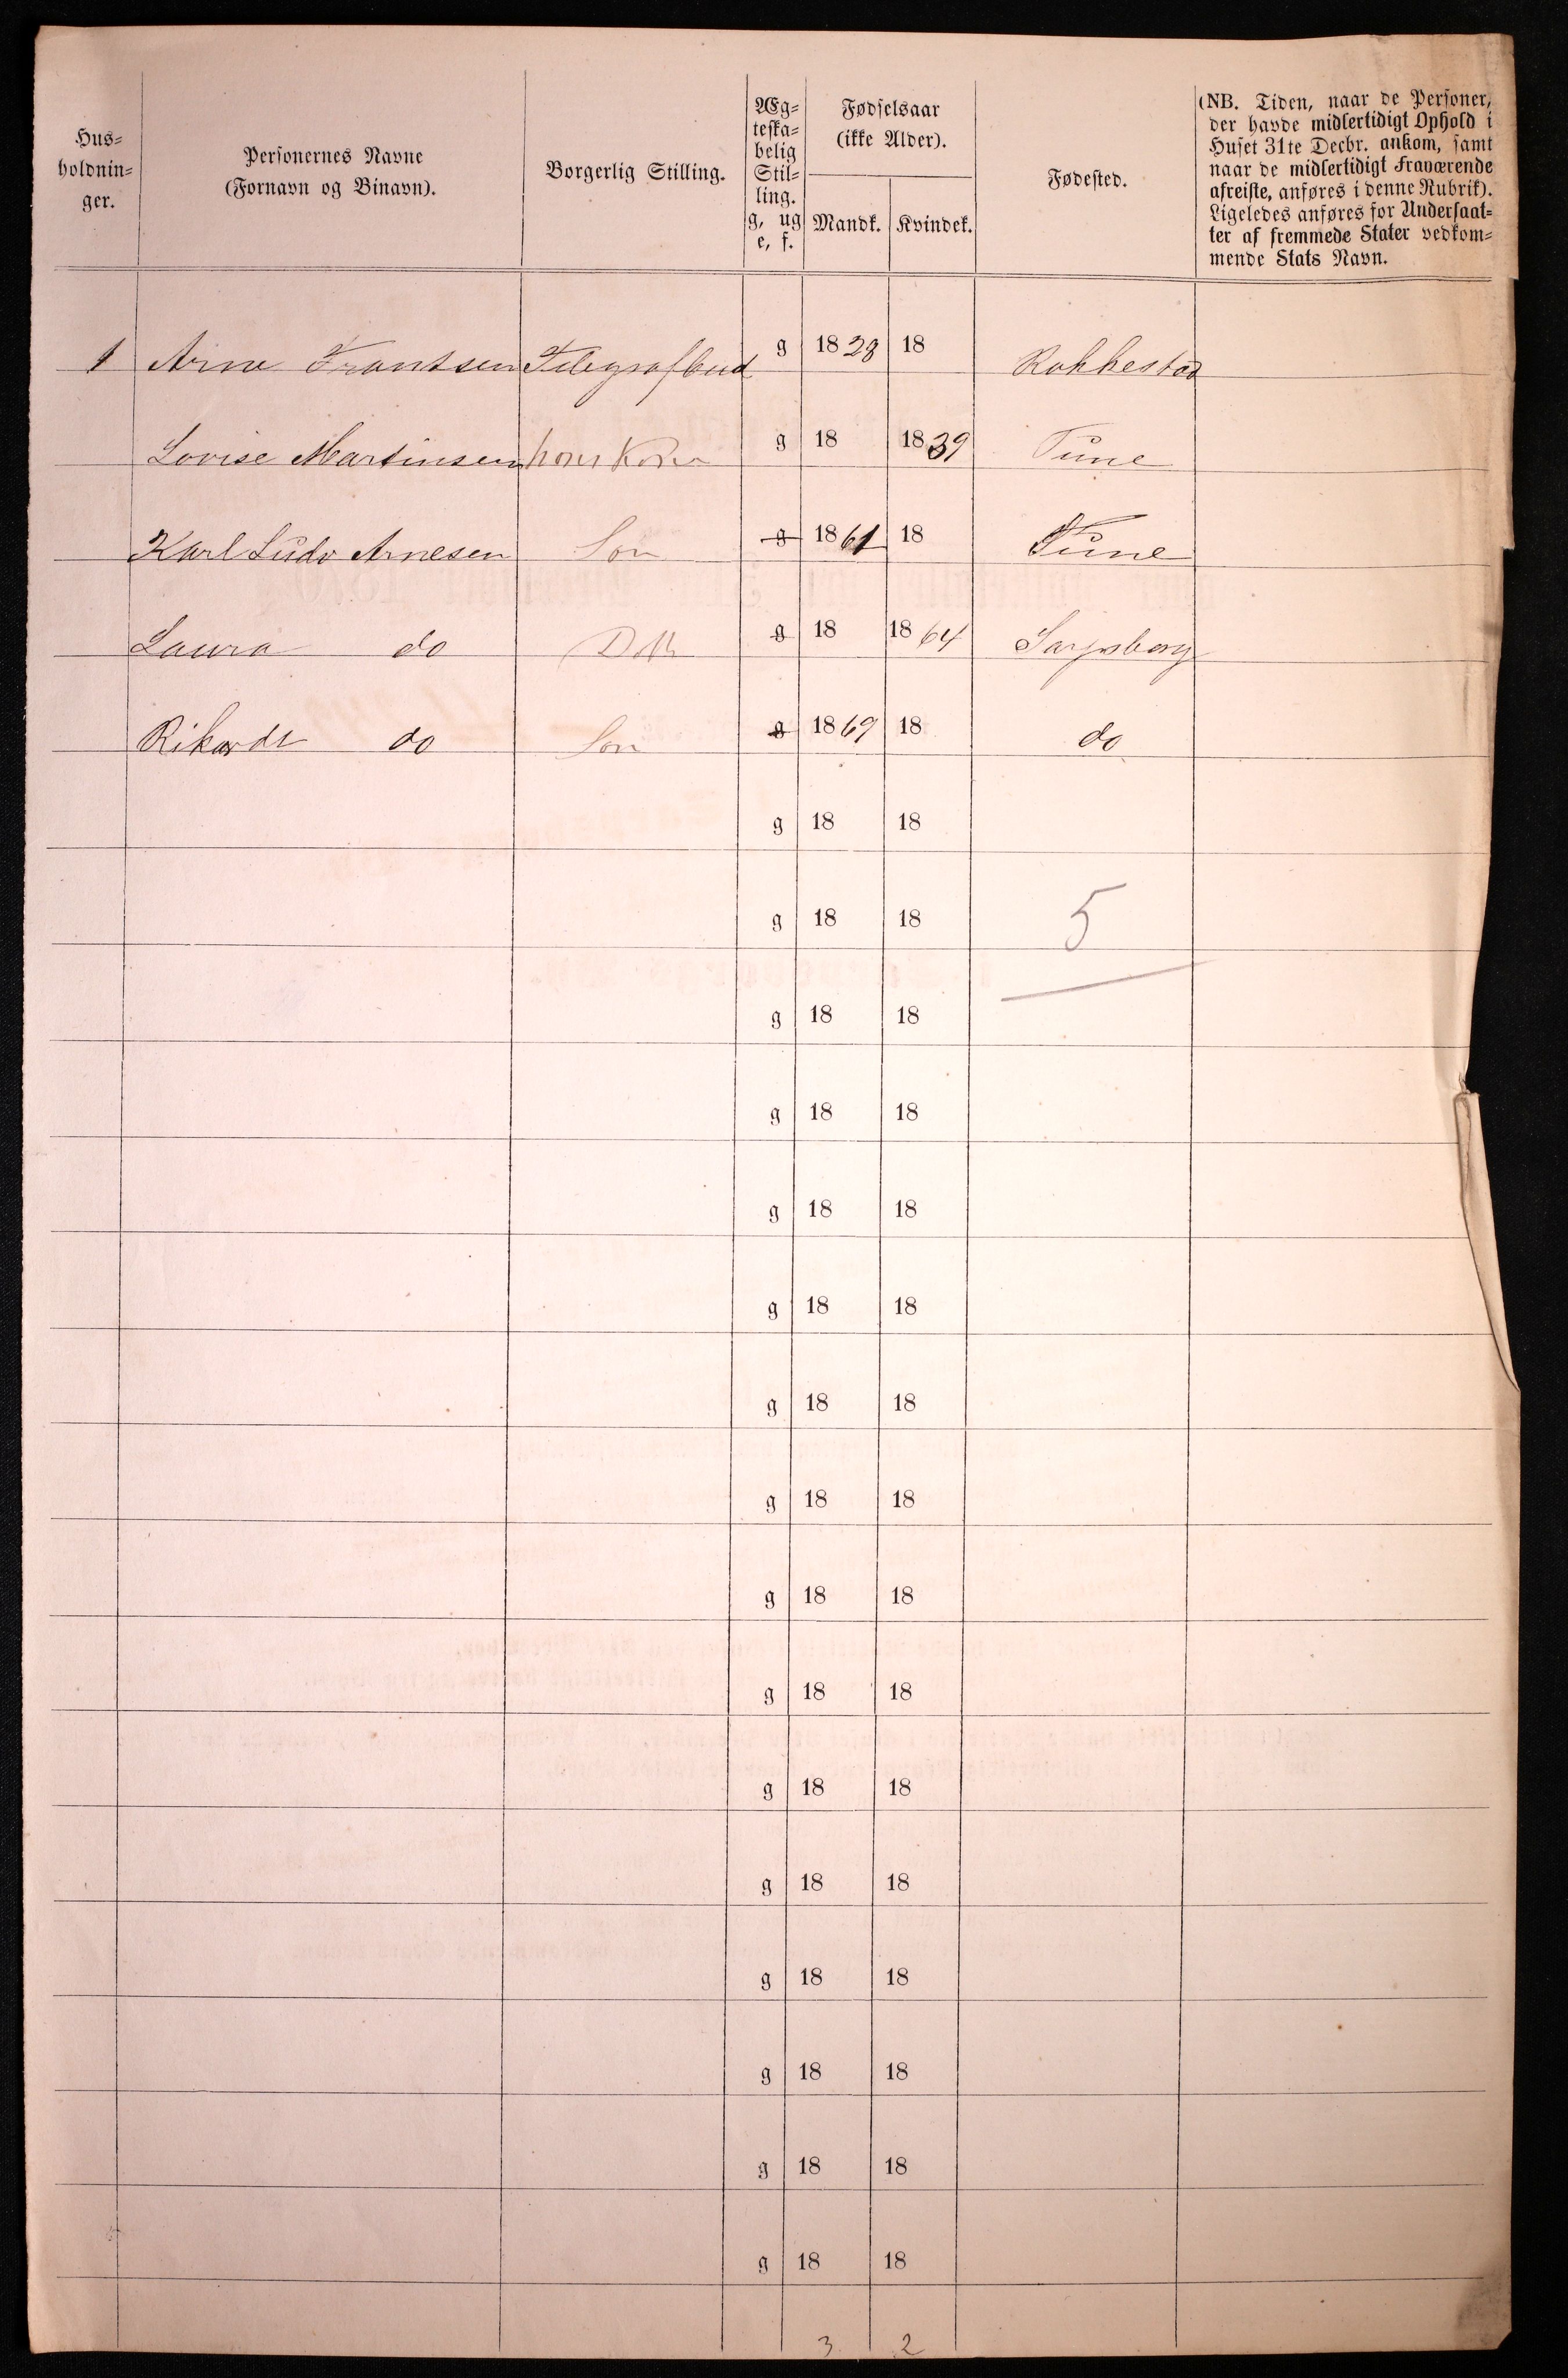 Hus=
holdnin=
ger.
Personernes Navne
(Fornavn og Binavn).
Borgerlig Stilling.
Æg=
teska=
belig
Stil=
ling.
g, ug
e, f.
Fødselsaar
(ikke Alder).
Mandk. Kvindek.
Fødested.
(NB. Tiden, naar de Personer,
der havde midlertidigt Ophold i
Huset 31te Decbr. ankom, samt
naar de midlertidigt Fraværende
afreiste, anføres i denne Rubrik).
Ligeledes anføres for Undersaat=
ter af fremmede Stater vedkom=
mende Stats Navn.
1 Arne Frantsen Telegrafbud g 1828 18 Rakkestad
Lovise Martinsen hans Kone g 18 1839 Tune
Karl Ludv Arnesen Søn g 1861 18 Tune
Laura do Dattr g 18 1864 Sarpsborg
Rikardt do Søn g 1869 18 do
g 18 18
g 18 18 5
g 18 18
g 18 18
g 18 18
g 18 18
g 18 18
g 18 18
g 18 18
g 18 18
g 18 18
g 18 18
g 18 18
g 18 18
g 18 18
g 18 18
3 2